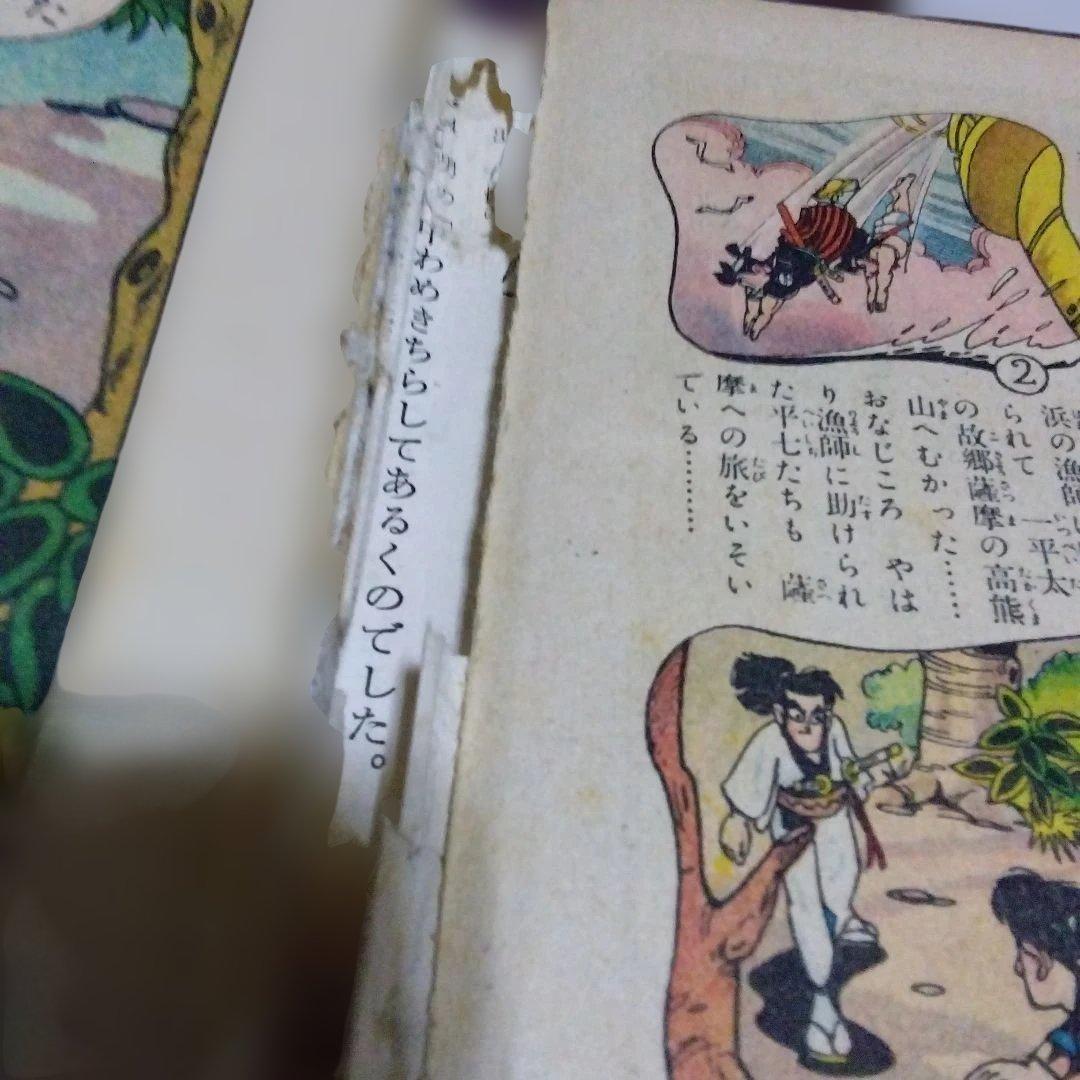 ②
浜の漁師
られて 一平太
の故郷薩摩の高熊
山へむかった……
おなじころ やは
り漁師に助けられ
た平七たちも 薩
摩への旅をいそい
でいる………
わめきちらしてあるくのでした。